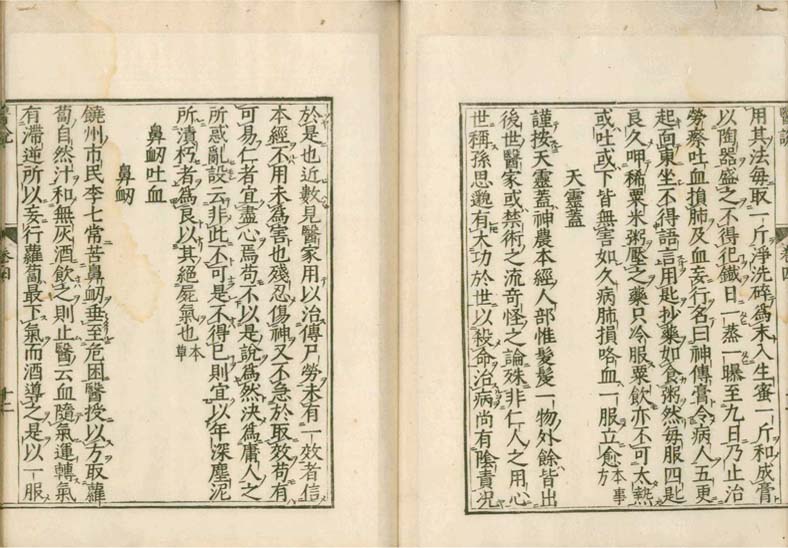 醫説
卷四
用其法每取一斤淨洗碎爲末入生蜜一斤和成膏
以陶器盛之不得犯鐵日一蒸一曝至九日乃止治
勞瘵吐血損肺及血妄行名曰神傳膏令病人五更
起面東坐不得語言用匙抄藥如食粥然每服四匙
良久呷稀粟米粥壓之藥只冷服粟飲亦不可太熱
或吐或下皆無害如久病肺損咯血一服立愈本事方
天靈蓋
謹按天靈蓋神農本經人部惟髮髲一物外餘皆出
後世醫家或禁術之流奇怪之論殊非仁人之用心
世稱孫思邈有大功於世以殺命治病尚有陰責況
於是也近數見醫家用以治傳尸勞未有一效者信
本經不用未爲害也殘忍傷神又不急於取效苟有
可易仁者宜盡心焉苟不以是說爲然決爲庸人之
所惑亂設云非此不可是不得已則宜以年深塵泥
所漬朽者爲良以其絕屍氣也本草
鼻衂吐血
鼻衂
饒州市民李七常苦鼻衂垂至危困醫授以方取蘿
蔔自然汁和無灰酒飲之則止醫云血隨氣運轉氣
有滯逆所以妄行蘿蔔最下氣而酒導之是以一服
卷四
十二